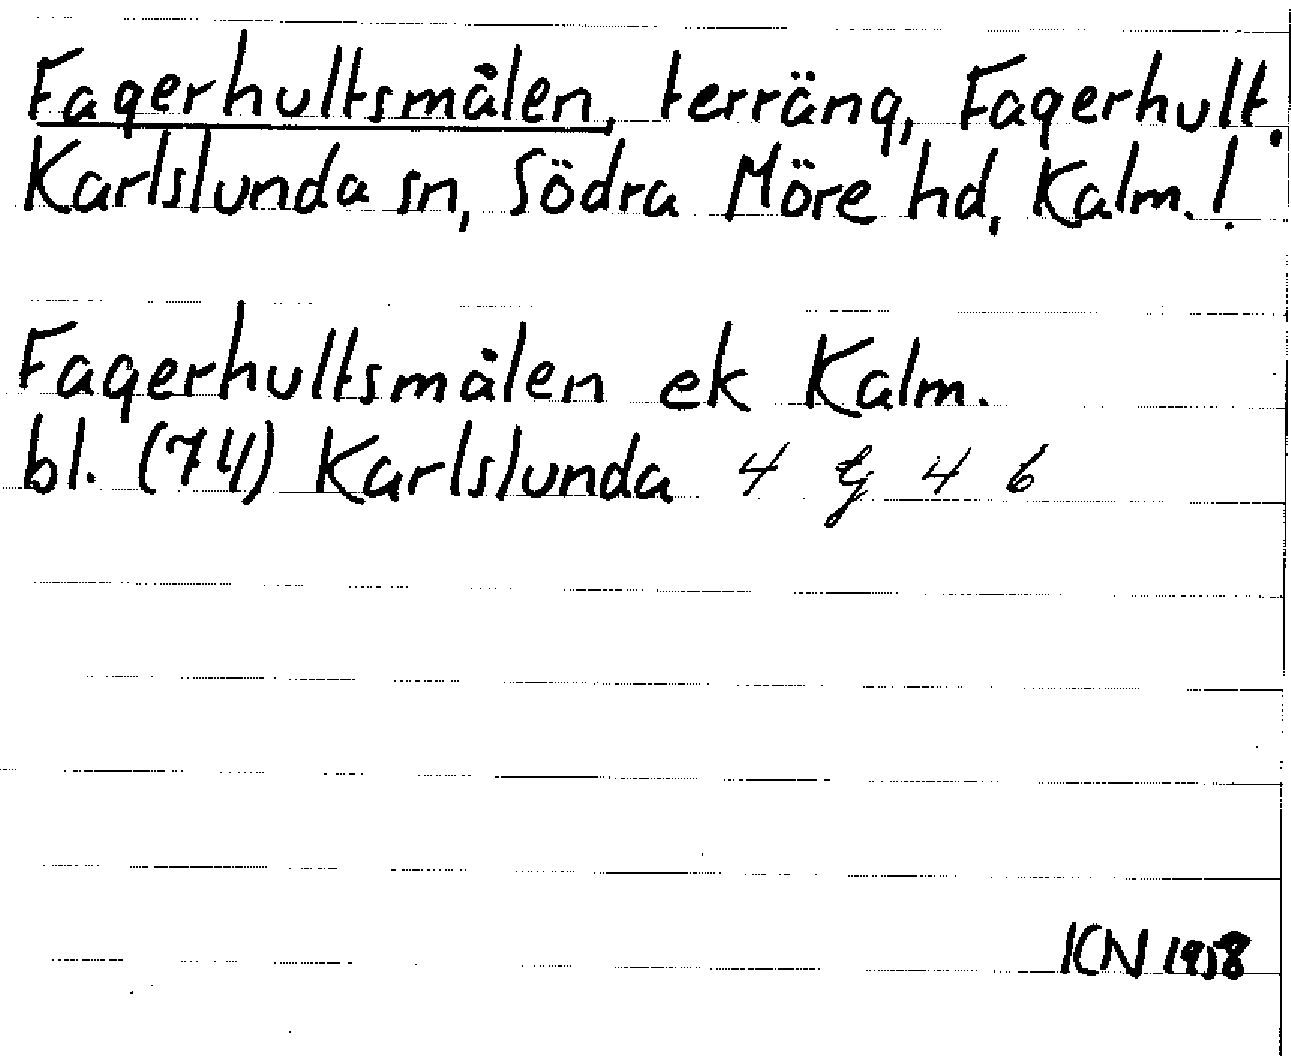 Fagerhultsmålen, terräng, Fagerhult.
Karlslunda sn, Södra Möre hd, Kalm.!
Fagerhultsmålen ek Kalm.
bl. (74) Karlslunda 4 G 4 6
ICN 1958